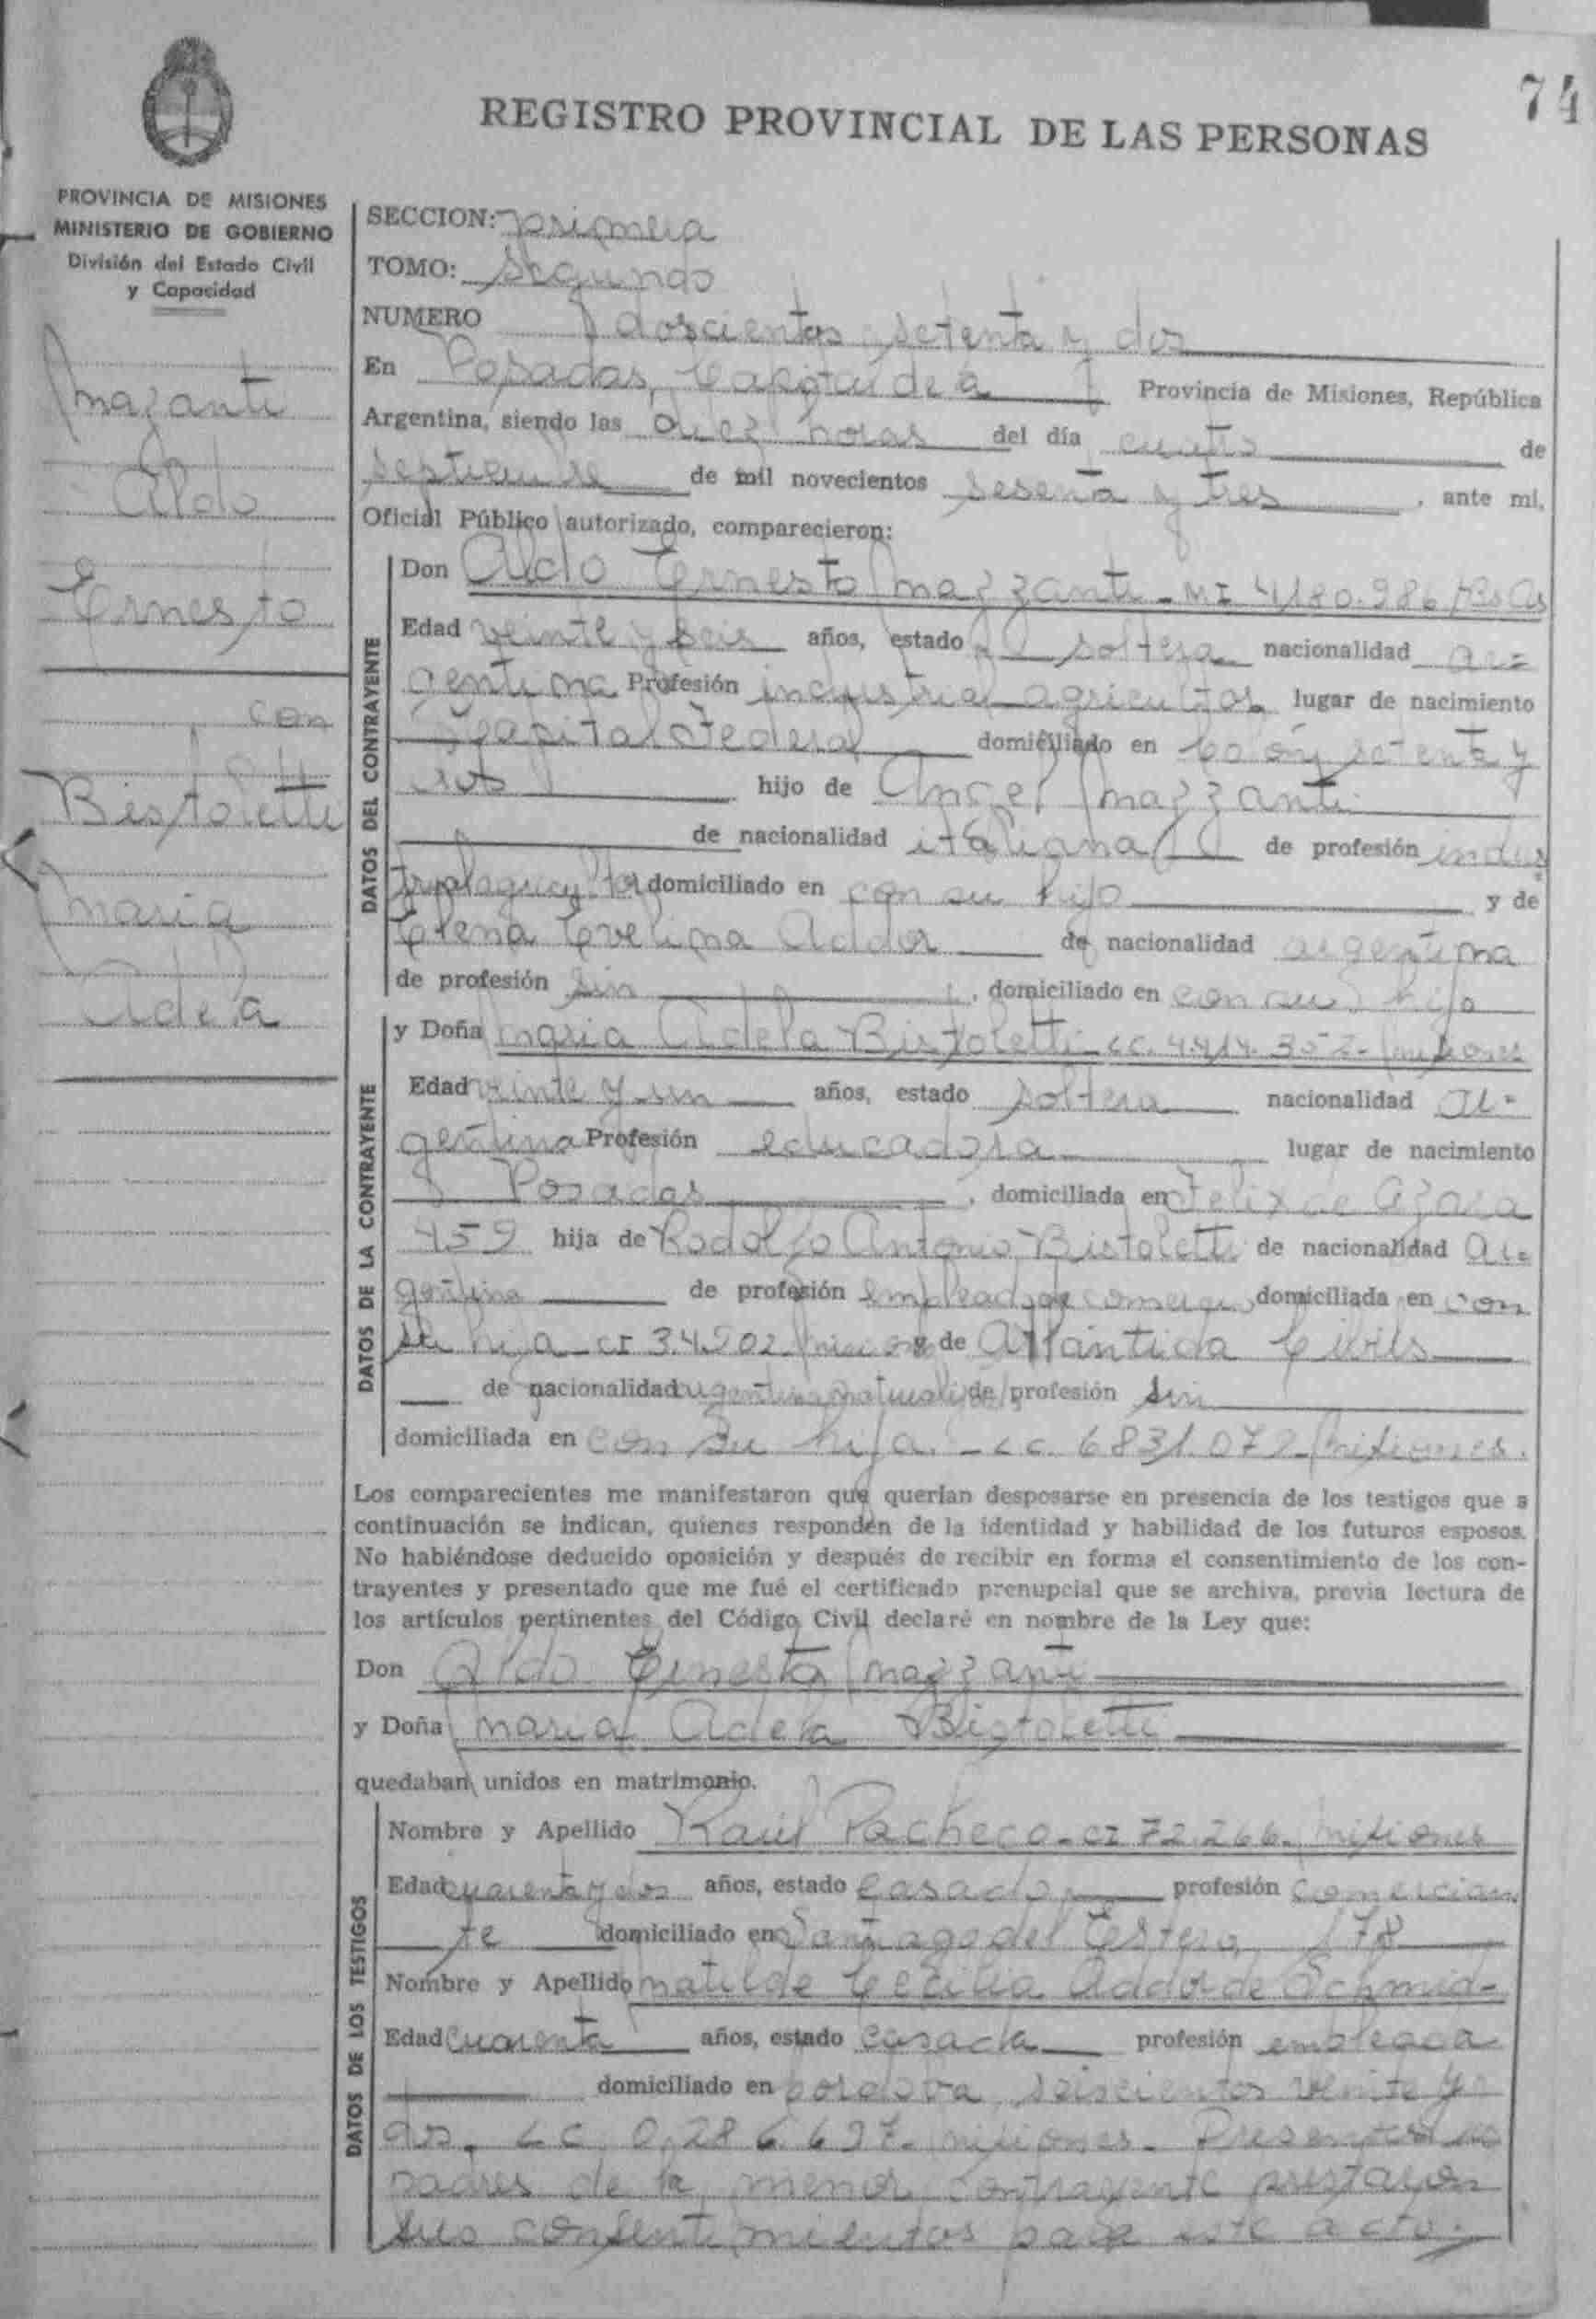 74
REGISTRO PROVINCIAL DE LAS PERSONAS
PROVINCIA DE MISIONES
MINISTERIO DE GOBIERNO
División del Estado Civil
y Capacidad
Mazanti
Aldo
Ernesto
con
Bistoletti
Maria
Adela
SECCION: primera
TOMO: Segundo
NUMERO doscientos setenta y dos
En Posadas, Capital de la Provincia de Misiones, República
Argentina, siendo las diez horas del día cuatro de
septiembre de mil novecientos sesenta y tres, ante mi,
Oficial Público autorizado, comparecieron:
DATOS DEL CONTRAYENTE
Don Aldo Ernesto Mazzanti - MI 4180.986 Bs As
Edad veinte y seis años, estado soltero nacionalidad ar=
gentina Profesión industrial agricultor lugar de nacimiento
Capital Federal domiciliado en Colón setenta y
hijo de Angel Mazzanti
de nacionalidad italiana de profesión indus
trial agricultor domiciliado en con su hijo y de
Elena Evelina Addor de nacionalidad argentina
de profesión sin, domiciliado en con su hijo
DATOS DE LA CONTRAYENTE
y Doña Maria Adela Bistoletti - LC. 4.414.352 - Misiones
Edad veinte y un años, estado soltera nacionalidad ar=
gentina Profesión educadora lugar de nacimiento
Posadas, domiciliada en Felix de Azara
459 hija de Rodolfo Antonio Bistoletti de nacionalidad ar=
gentina de profesión empleado de comercio domiciliada en con
su hija - CI 34.902 Misiones y de Atlántida Civils
de nacionalidad argentina naturaliz de profesión sin
domiciliada en con su hija. - LC. 6831.072 - Misiones.
Los comparecientes me manifestaron que querían desposarse en presencia de los testigos que a
continuación se indican, quienes responden de la identidad y habilidad de los futuros esposos.
No habiéndose deducido oposición y después de recibir en forma el consentimiento de los con-
trayentes y presentado que me fué el certificado prenupcial que se archiva, previa lectura de
los artículos pertinentes del Código Civil declaré en nombre de la Ley que:
Don Aldo Ernesto Mazzanti
y Doña Maria Adela Bistoletti
quedaban unidos en matrimonio.
DATOS DE LOS TESTIGOS
Nombre y Apellido Raúl Pacheco - CI 72.266. Misiones
Edad cuarenta y dos años, estado Casado profesión comercian
te domiciliado en Santiago del Estero 178
Nombre y Apellido Matilde Cecilia Addor de Schmid -
Edad cuarenta años, estado casada profesión empleada
domiciliado en Cordova seiscientos veinte y
dos. LC 0.286.697. Misiones. Presentes los
padres de la menor contrayente prestaron
sus consentimientos para este acto.